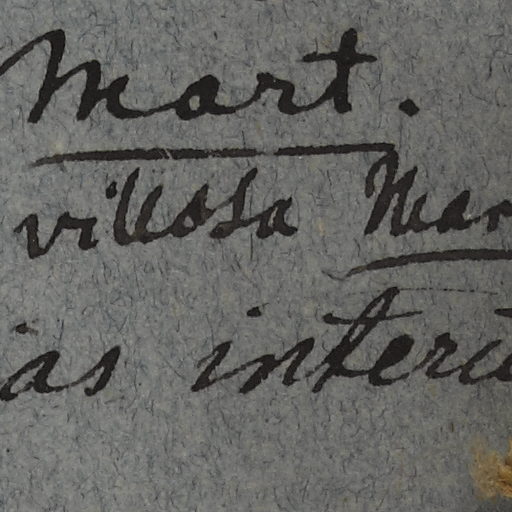 Mart.
villosa Mar
as interi